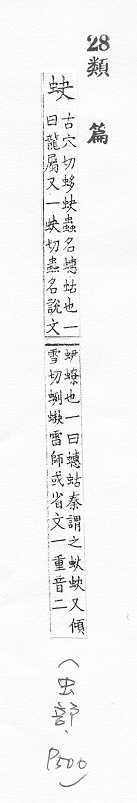 28類篇
蚗
古穴切蛥蚗蟲名蟪蛄也一
曰龍屬又一蚗切蟲名說文
蟟也一曰蟪蛄秦謂之蚗蚗又傾
雪切雷師或省文一重音二
(虫部、P500)